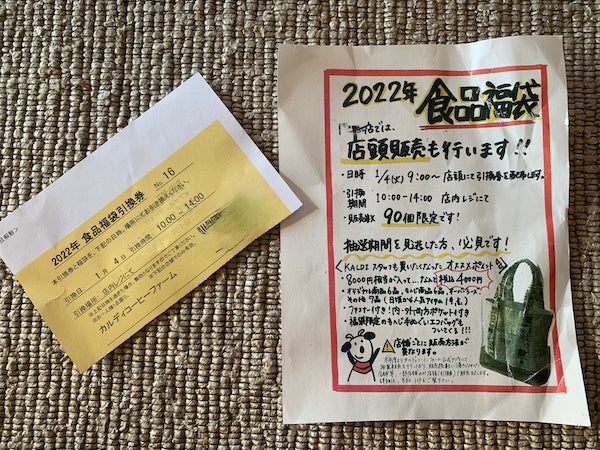 2022年 食品福袋引換券 No. 16
本引換券と福袋を、下記の日時、場所にてお引き換えください。
引換日： 1月4日 引換時間： 10:00－14:00
引換場所： 店内レジにて
カルディコーヒーファーム
2022年 食品福袋
店では、
店頭販売も行います!!
・日時 1/4(火) 9:00〜 店頭にて引換券を配布します。
・引換期間 10:00-14:00 店内レジにて
・販売数 90個限定です!
抽選期間を見逃した方、必見です!
KALDI スタッフも買いたくなったオススメポイント
・8000円相当が入って…なんと税込4000円
・オリジナル商品6品、もへじ商品6品、オーバーシーズ、
その他7品(日頃から人気アイテム
・ファスナー付き!内・外両方ポケット付き
・福袋限定のもへじ手ぬぐいエコバッグも
ついてくる!!!
店舗ごとに販売方法が
異なります。